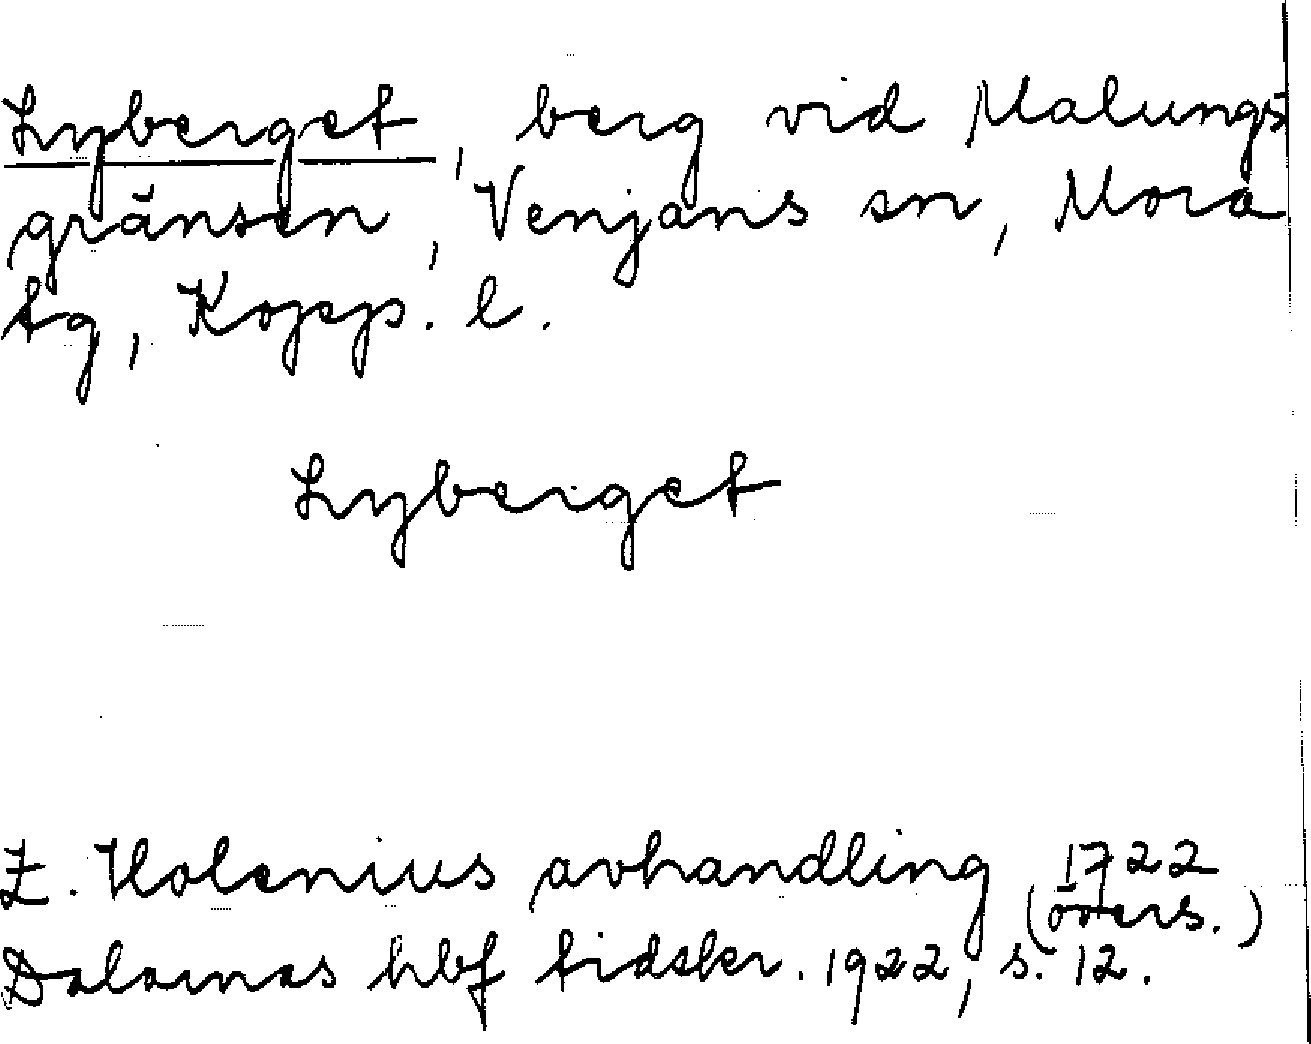 Lyberget, berg vid Malungs
gränsen, Venjans sn, Mora
tg, Kopp. l.
Lyberget
Z. Holenius avhandling 1722
(övers.)
Dalarnas hbf tidskr. 1922, s. 12.